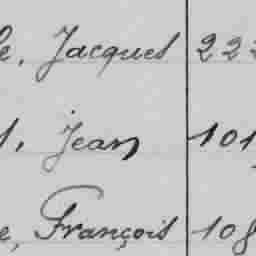 e, Jacques 222
, Jean 101
e, François 108